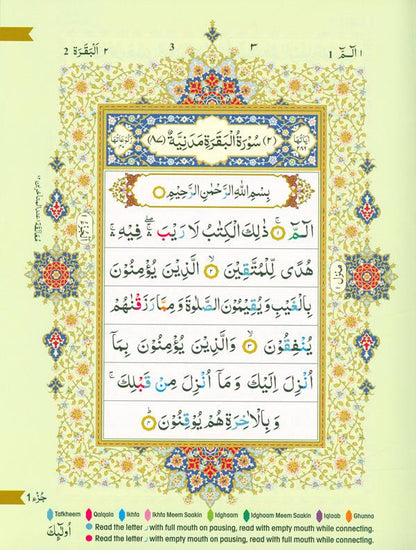 2 اَلْبَقَرَة ٢ 3 ٣ 1 الٓمّٓ ١
(٢) سُوْرَةُ الْبَقَرَةِ مَدَنِيَّةٌ (٨٧)
بِسْمِ اللّٰهِ الرَّحْمٰنِ الرَّحِيْمِ
الٓمّٓ ۚ ١ ذٰلِكَ الْكِتٰبُ لَا رَيْبَ ۛۖ فِيْهِ ۛۚ
هُدًى لِّلْمُتَّقِيْنَ ۙ ٢ الَّذِيْنَ يُؤْمِنُوْنَ
بِالْغَيْبِ وَيُقِيْمُوْنَ الصَّلٰوةَ وَمِمَّا رَزَقْنٰهُمْ
يُنْفِقُوْنَ ۙ ٣ وَالَّذِيْنَ يُؤْمِنُوْنَ بِمَآ
اُنْزِلَ اِلَيْكَ وَمَآ اُنْزِلَ مِنْ قَبْلِكَ ۚ
وَبِالْاٰخِرَةِ هُمْ يُوْقِنُوْنَ ؕ ٤
منزل
1 جُزْء ١
Tafkheem Qalqala Ikhfa Ikhfa Meem Saakin Idghaam Idghaam Meem Saakin Iqlaab Ghunna
Read the letter ر with full mouth on pausing, read with empty mouth while connecting.
Read the letter ر with empty mouth on pausing, read with full mouth while connecting.
اُولٰٓئِكَ